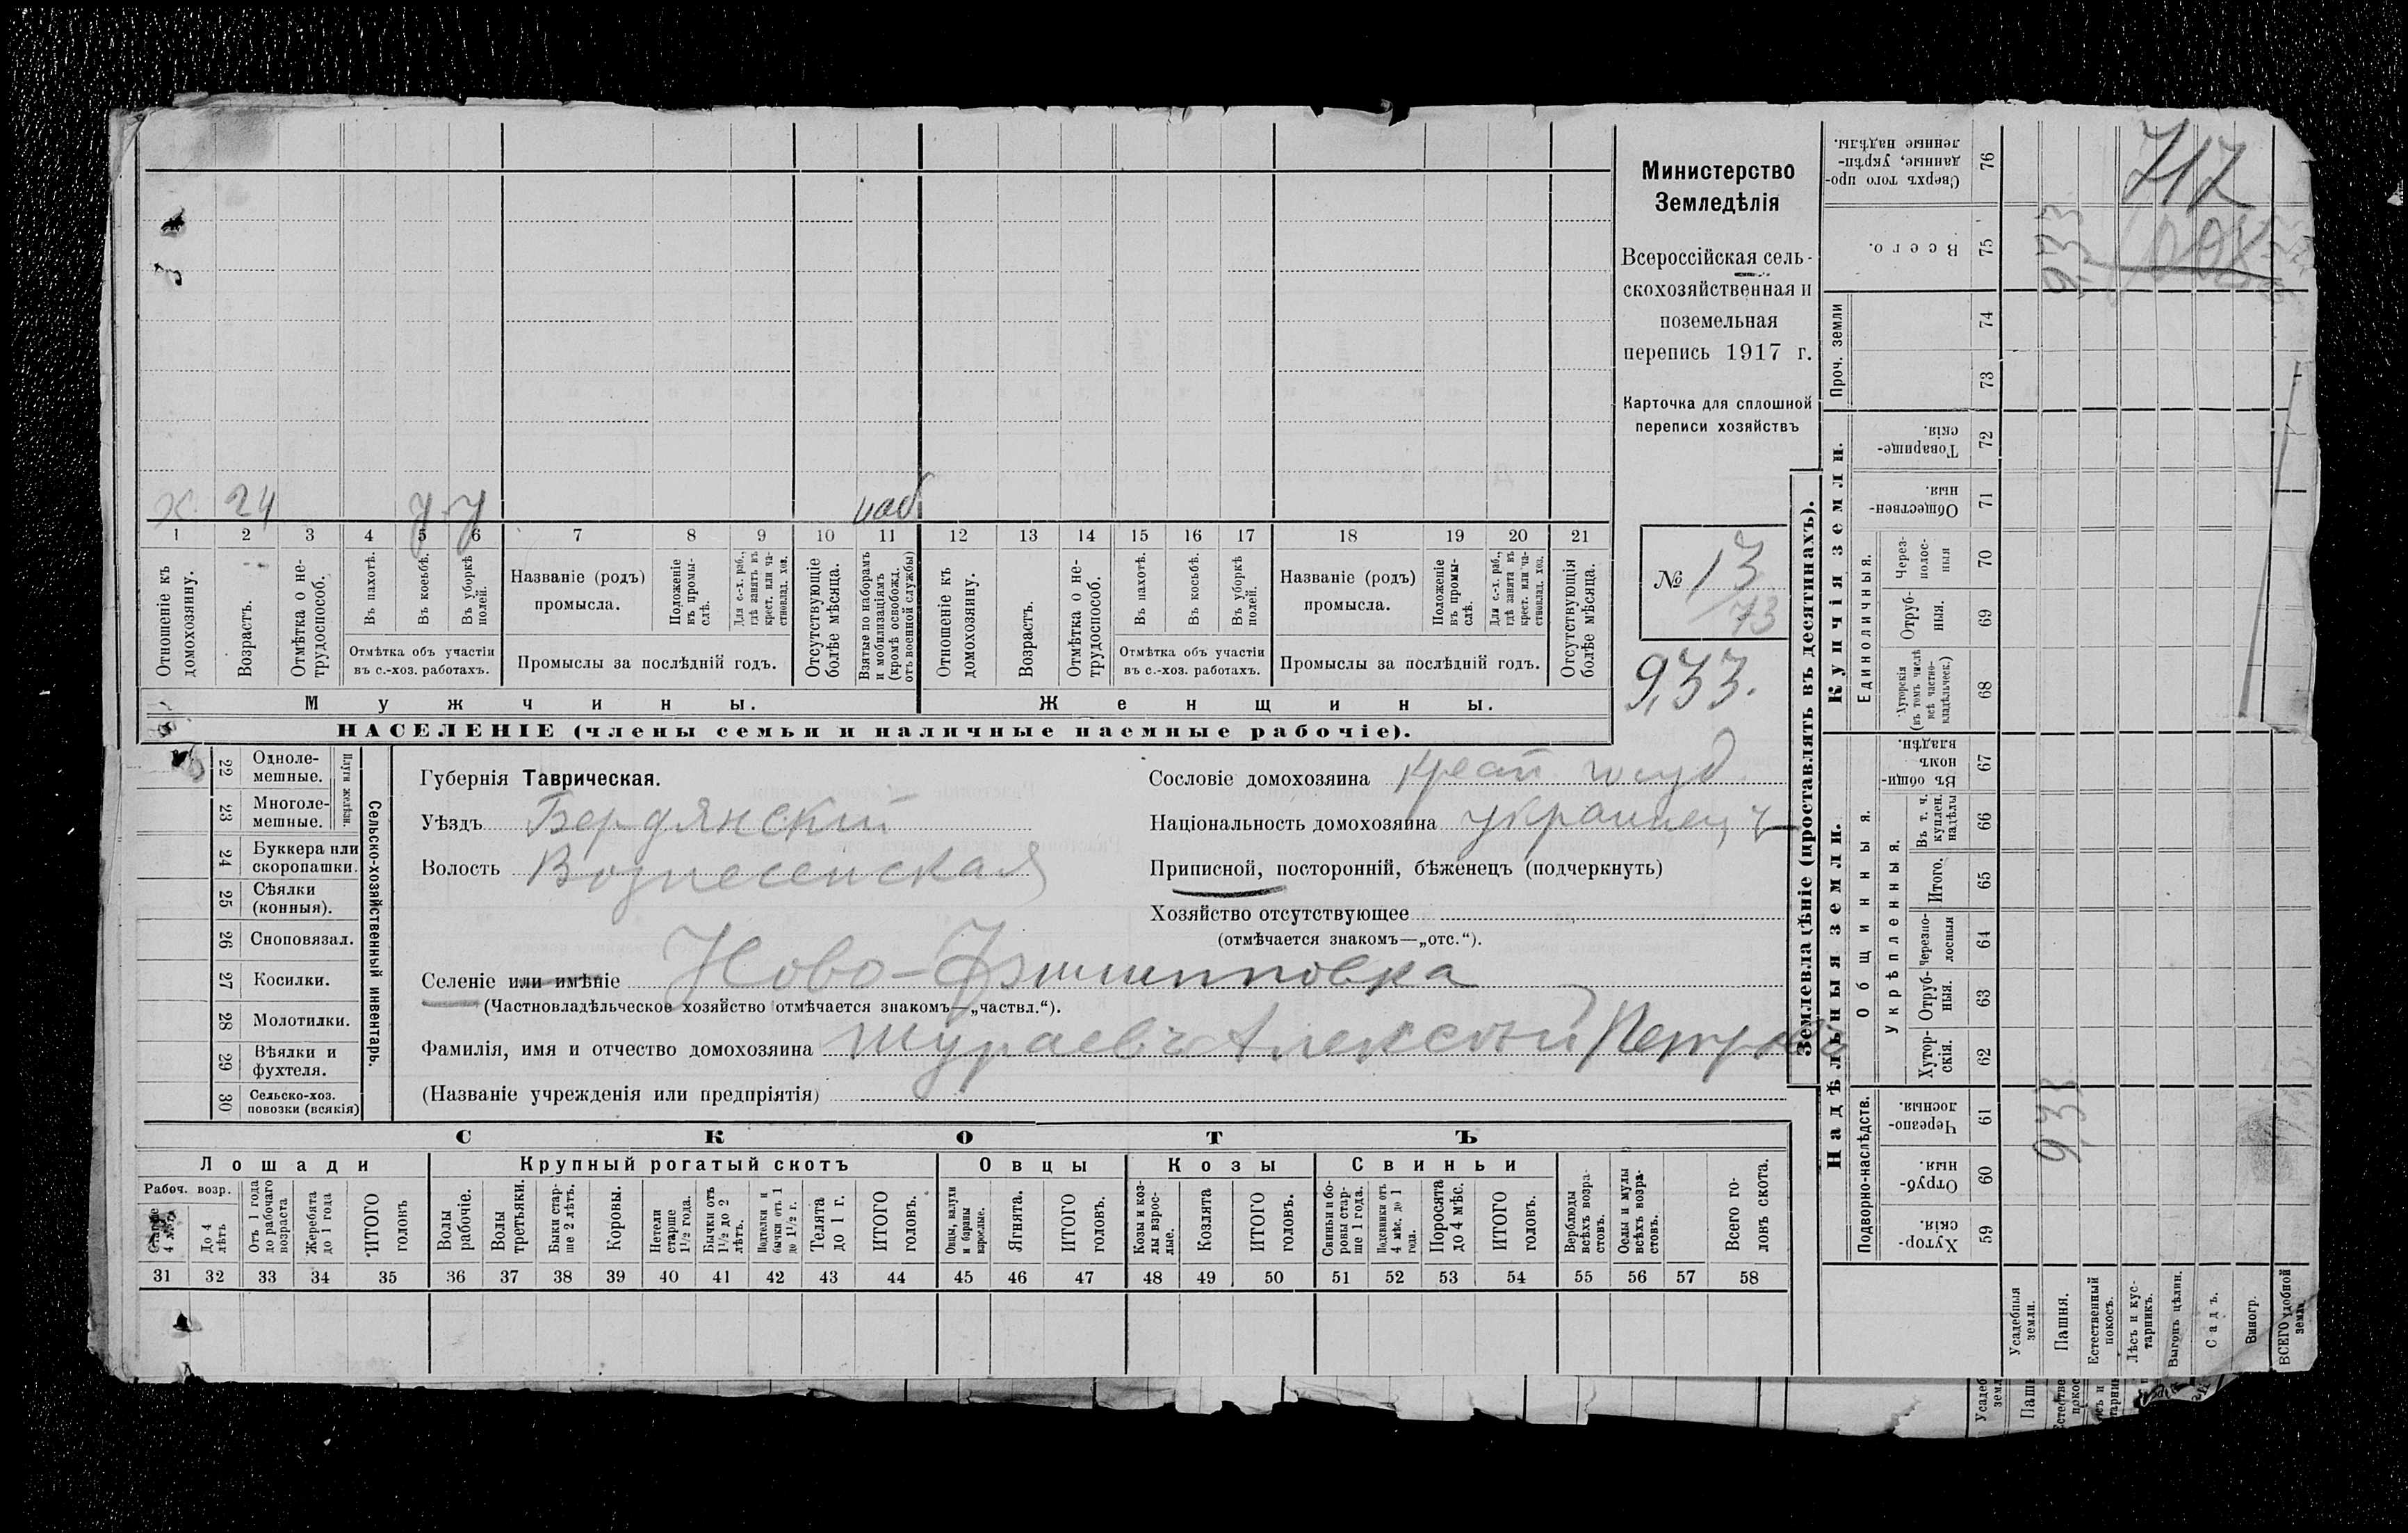 х. 24 у у наб
1 2 3 4 5 6 7 8 9 10 11 12 13 14 15 16 17 18 19 20 21
Отношеніе къ домохозяину.
Возрастъ.
Отмѣтка о не-
трудоспособ.
Въ пахотѣ.
Въ косьбѣ.
Въ уборкѣ
полей.
Отмѣтка объ участіи
въ с.-хоз. работахъ.
Названіе (родъ)
промысла.
Положеніе
въ промы-
слѣ.
Для с.-х. раб.,
гдѣ занятъ въ
крест. или ча-
стновлад. хоз.
Промыслы за послѣдній годъ.
Отсутствующіе
болѣе мѣсяца.
Взятые по наборамъ
и мобилизаціямъ
(кромѣ освобожд.
отъ военной службы)
Отношеніе къ
домохозяину.
Возрастъ.
Отмѣтка о не-
трудоспособ.
Въ пахотѣ.
Въ косьбѣ.
Въ уборкѣ
полей.
Отмѣтка объ участіи
въ с.-хоз. работахъ.
Названіе (родъ)
промысла.
Положеніе
въ промы-
слѣ.
Для с.-х. раб.,
гдѣ занята въ
крест. или ча-
стновлад. хоз.
Промыслы за послѣдній годъ.
Отсутствующія
болѣе мѣсяца.
Мужчины.
Женщины.
НАСЕЛЕНІЕ (члены семьи и наличные наемные рабочіе).
Министерство
Земледѣлія
Всероссійская сель-
скохозяйственная и
поземельная
перепись 1917 г.
Карточка для сплошной
переписи хозяйствъ
№ 13
73
9,33.
22 Одноле-
мешные.
23 Многоле-
мешные.
Плуги желѣзн.
24 Буккера или
скоропашки.
25 Сѣялки
(конныя).
26 Сноповязал.
27 Косилки.
28 Молотилки.
29 Вѣялки и
фухтеля.
30 Сельско-хоз.
повозки (всякія)
Сельско-хозяйственный инвентарь.
Губернія Таврическая.
Уѣздъ Бердянскій
Волость Вознесенская
Селеніе или имѣніе Ново-Филипповка
(Частновладѣльческое хозяйство отмѣчается знакомъ—„частвл.“).
Фамилія, имя и отчество домохозяина Журавевъ Алексѣй Петров
(Названіе учрежденія или предпріятія)
Сословіе домохозяина крест госуд
Національность домохозяина украинецъ
Приписной, посторонній, бѣженецъ (подчеркнуть)
Хозяйство отсутствующее
(отмѣчается знакомъ—„отс.“).
СКОТЪ
Лошади
Крупный рогатый скотъ
Овцы
Козы
Свиньи
Рабоч. возр.
Старше
4 лѣтъ
До 4
лѣтъ
Отъ 1 года
до рабочаго
возраста
Жеребята
до 1 года
ИТОГО
головъ
Волы
рабочіе.
Волы
третьяки.
Быки стар-
ше 2 лѣтъ.
Коровы.
Нетели
старше
1½ года.
Бычки отъ
1½ до 2
лѣтъ.
Подтелки и
бычки отъ 1
до 1½ г.
Телята
до 1 г.
ИТОГО
головъ.
Овцы, валухи
и бараны
взрослые.
Ягнята.
ИТОГО
головъ.
Козы и коз-
лы взрос-
лые.
Козлята
ИТОГО
головъ.
Свиньи и бо-
ровы стар-
ше 1 года.
Подсвинки отъ
4 мѣс. до 1
года.
Поросята
до 4 мѣс.
ИТОГО
головъ.
Верблюды
всѣхъ возра-
стовъ.
Ослы и мулы
всѣхъ возра-
стовъ.
Всего го-
ловъ скота.
31 32 33 34 35 36 37 38 39 40 41 42 43 44 45 46 47 48 49 50 51 52 53 54 55 56 57 58
Землевладѣніе (проставлять въ десятинахъ).
Купчія земли.
Надѣльныя земли.
Сверхъ того про-
данные, укрѣп-
ленные надѣлы.
76
Всего.
75
Проч. земли
74
73
Товарище-
скія.
72
Обществен-
ныя.
71
Единоличныя.
Через-
полос-
ныя
70
Отруб-
ныя.
69
Хуторскія
(въ томъ числѣ
всѣ частно-
владѣльческ.)
68
Общинныя.
Въ общи-
номъ
владѣн.
67
Укрѣпленныя.
Въ т. ч.
куплен.
надѣлы
66
Итого.
65
Черезпо-
лосныя
64
Отруб-
ныя.
63
Хутор-
скія.
62
Подворно-наслѣдств.
Черезпо-
лосныя.
61
Отруб-
ныя.
60
Хутор-
скія.
59
Усадебныя
земли.
Пашня.
Естественный
покосъ.
Лѣсъ и кус-
тарникъ.
Выгонъ цѣлин.
Садъ.
Виногр.
ВСЕГО удобной
земли
717
9,33
9,33